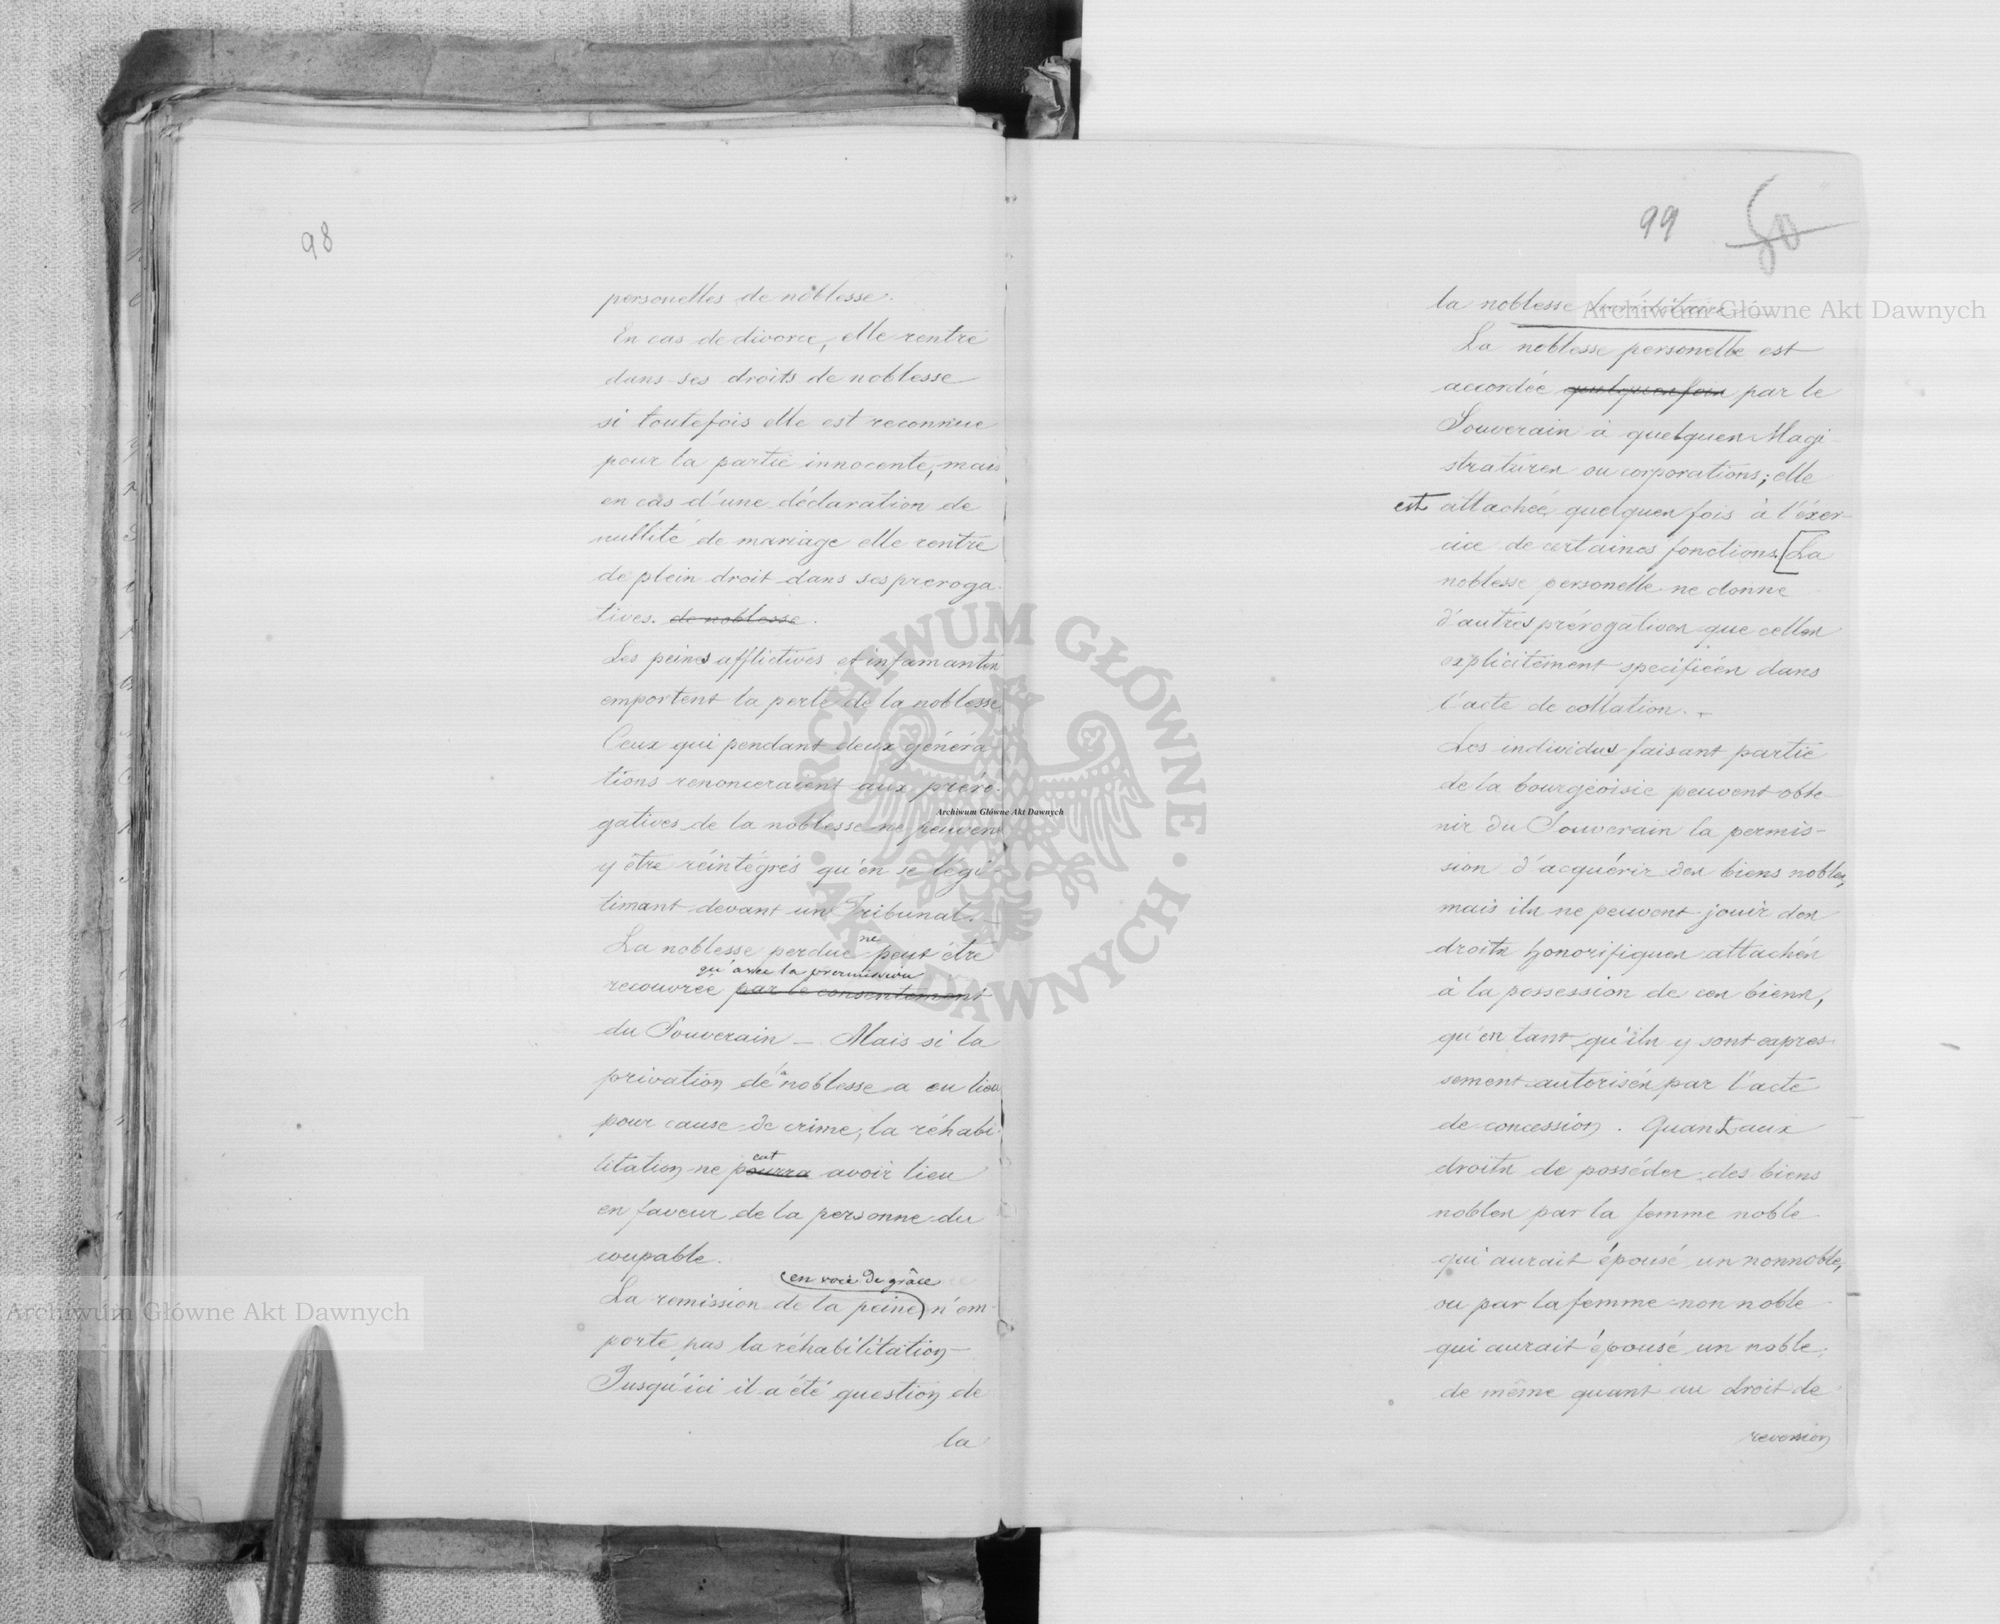 98
personelles de noblesse.
En cas de divorce, elle rentre
dans ses droits de noblesse
si toutefois elle est reconnue
pour la partie innocente, mais
en cas d'une déclaration de
nullité de mariage elle rentre
de plein droit dans ses preroga-
tives. de noblesse.
Les peines afflictives et infamantes
emportent la perte de la noblesse.
Ceux qui pendant deux généra-
tions renonceraient aux préro-
gatives de la noblesse ne peuvent
y être réintégrés qu'en se légi-
timant devant un Tribunal. —
La noblesse perdue ne peut être
qu'avec la permission
recouvrée par le consentement
du Souverain — Mais si la
privation de noblesse a eu lieu
pour cause de crime, la réhabi-
litation ne pourra avoir lieu
en faveur de la personne du
coupable.
en voie de grâce
La remission de la peine n'em-
porte pas la réhabilitation —
Jusqu'ici il a été question de
la
99
50
la noblesse héréditaire
La noblesse personelle est
accordée quelques fois par le
Souverain à quelques Magi-
stratures ou corporations; elle
est attachée quelques fois à l'éxer-
cice de certaines fonctions. [La
noblesse personelle ne donne
d'autres prérogatives que celles
explicitement specifiées dans
l'acte de collation. —
Les individus faisant partie
de la bourgeoisie peuvent obte-
nir du Souverain la permis-
sion d'acquérir des biens nobles,
mais ils ne peuvent jouir des
droits honorifiques attachés
à la possession de ces biens,
qu'en tant qu'ils y sont expres-
sement autorisés par l'acte
de concession. Quant aux
droits de posséder des biens
nobles par la femme noble
qui aurait épousé un nonnoble,
ou par la femme non noble
qui aurait épousé un noble,
de même quant au droit de
reversion
Archiwum Główne Akt Dawnych
Archiwum Główne Akt Dawnych
Archiwum Główne Akt Dawnych
ARCHIWUM GŁÓWNE AKT DAWNYCH